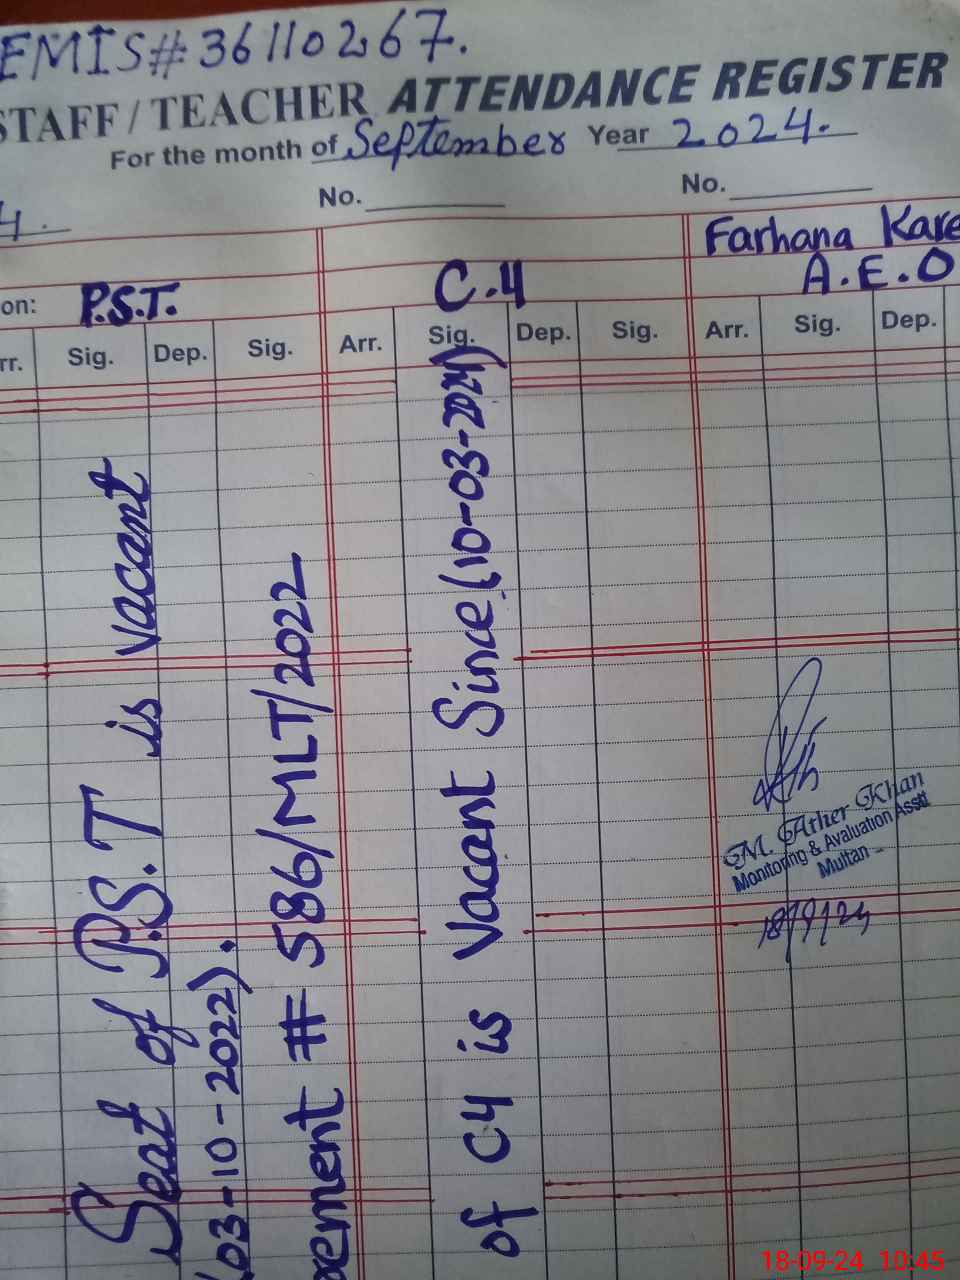 EMIS#36110267.
STAFF/TEACHER ATTENDANCE REGISTER
For the month of September Year 2024.
No.
No.
4.
Farhana Kare
on: P.S.T.
C.4
A.E.O
rr. Sig. Dep. Sig. Arr. Sig. Dep. Sig. Arr. Sig. Dep.
Seat of P.S.T is vacant
(03-10-2022).
# 586/MLT/2022
of C4 is Vacant Since (10-03-2024)
M. Ather Khan
Monitoring & Evaluation Asstt
Multan
18/9/24
18-09-24 10:45